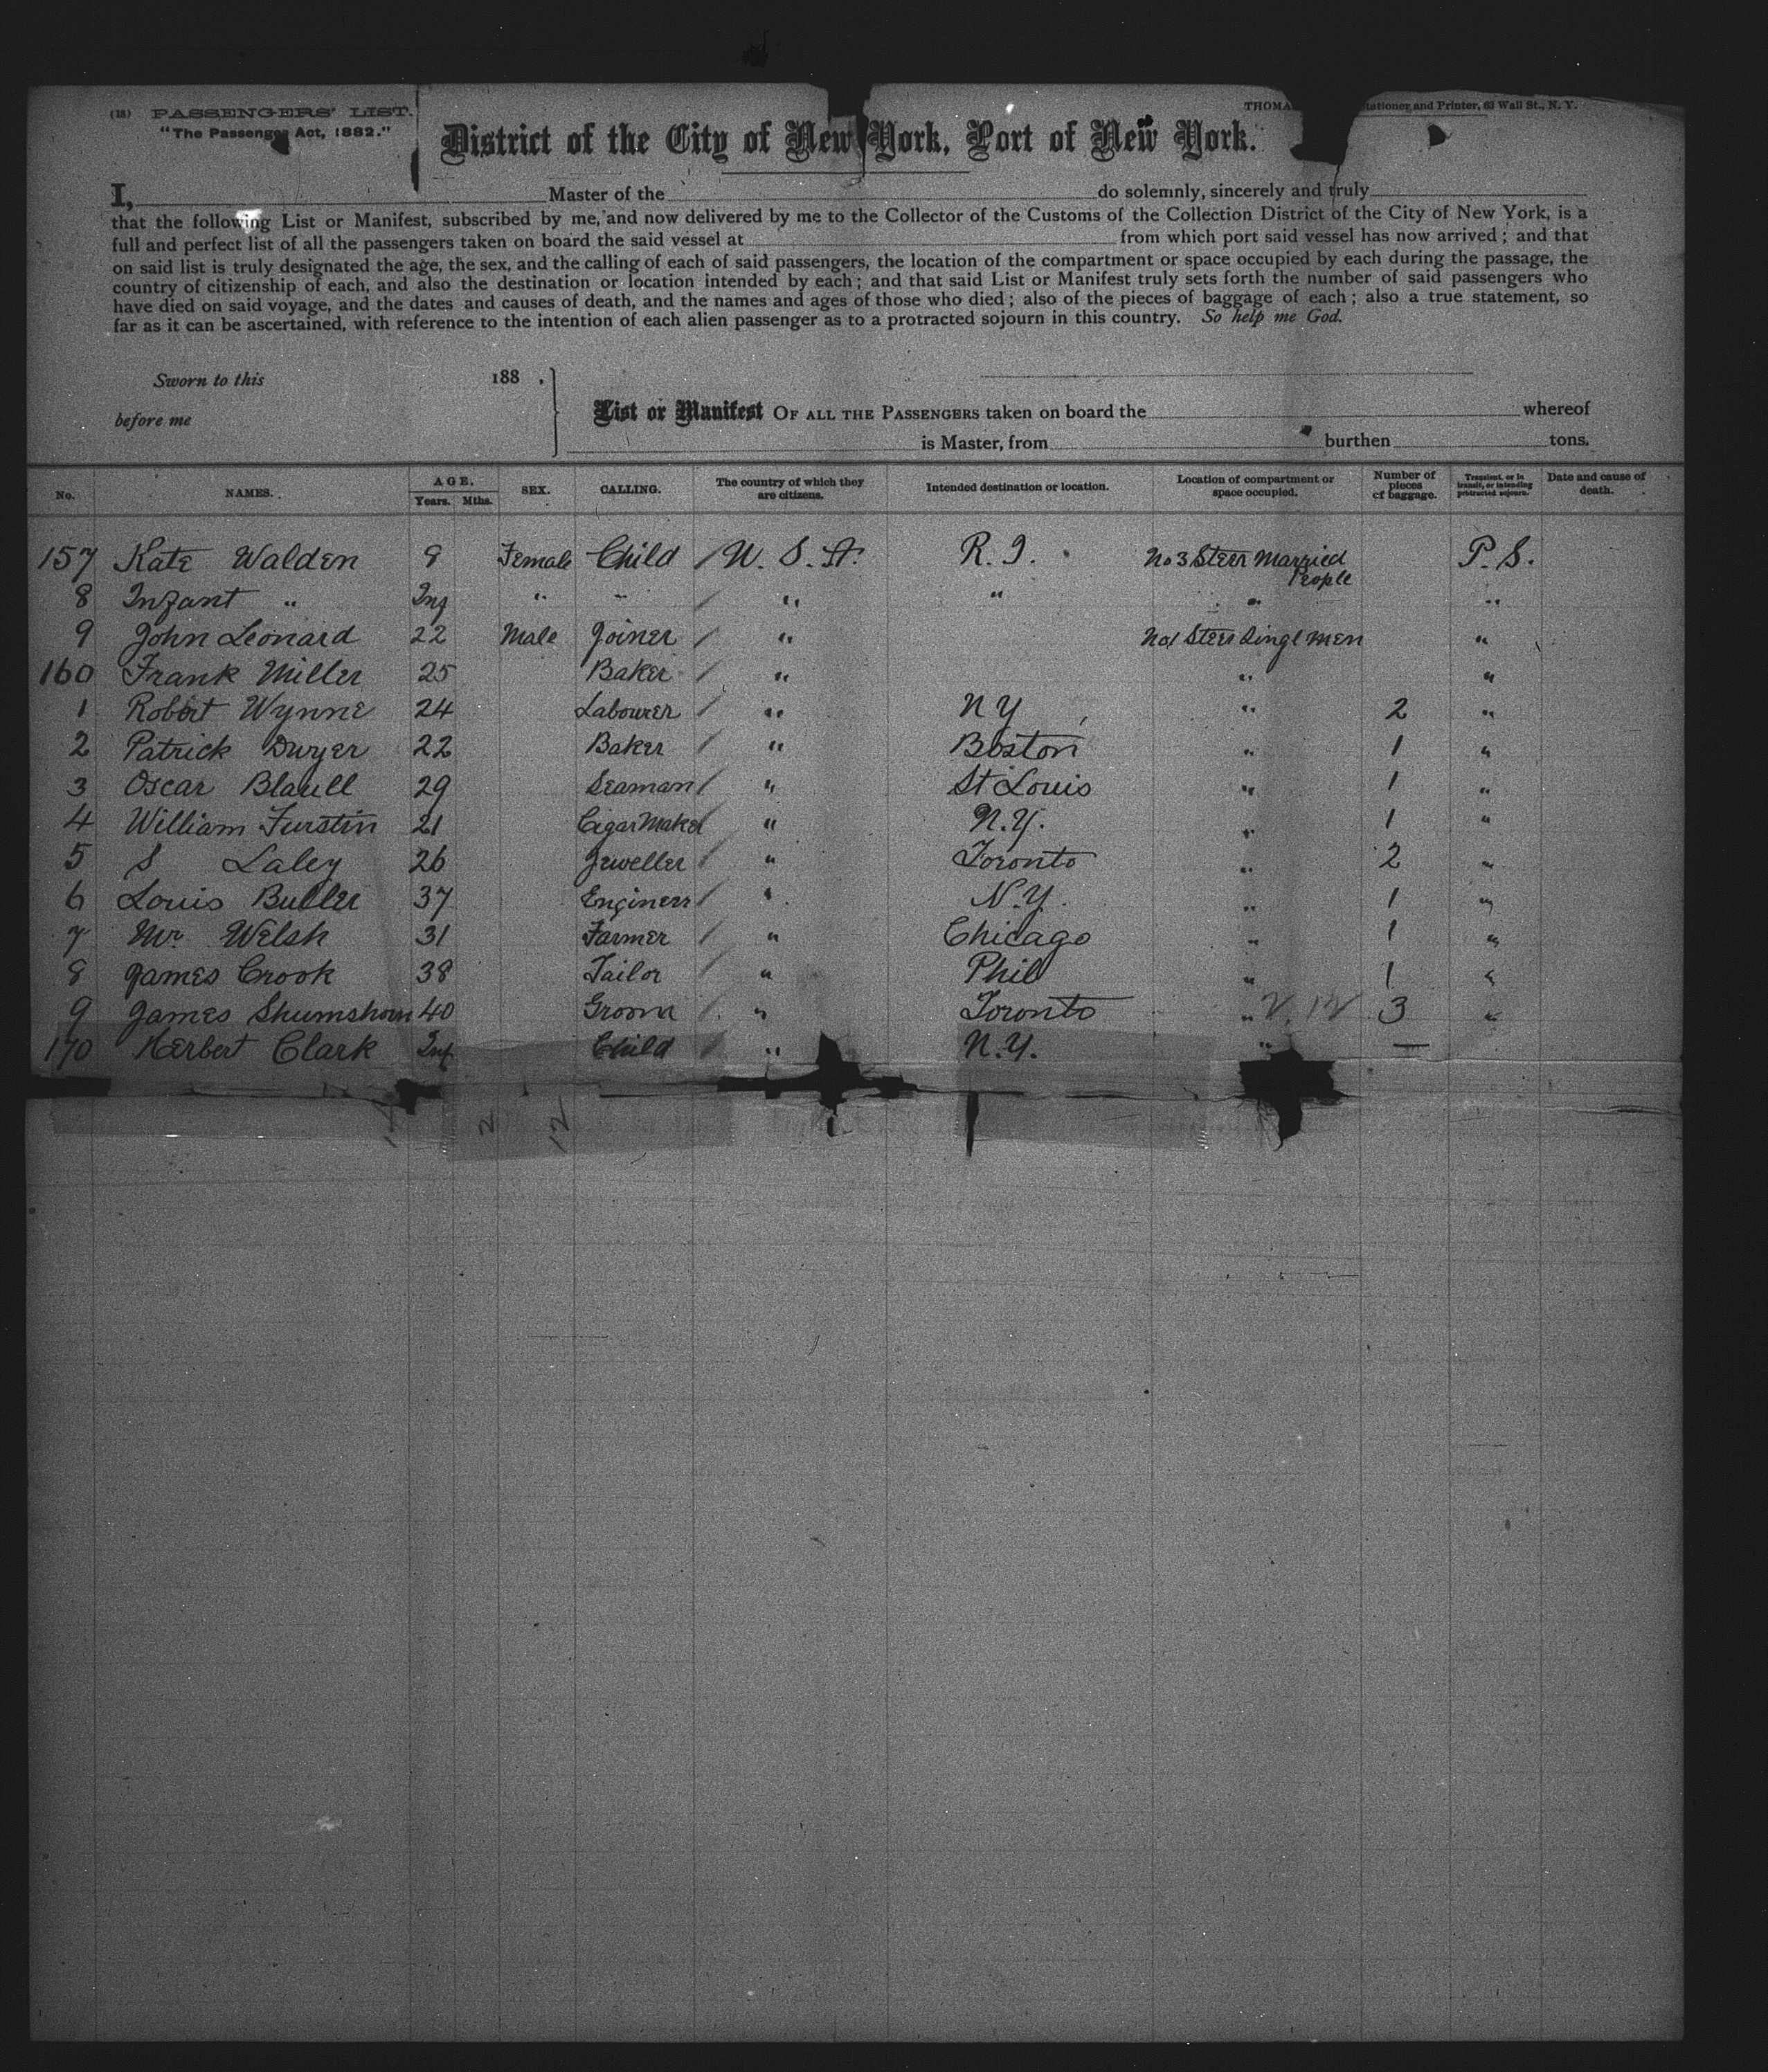 (18) PASSENGERS' LIST.
"The Passenger Act, 1882."
THOMA stationer and Printer, 63 Wall St., N. Y.
District of the City of New York, Port of New York.
I, Master of the do solemnly, sincerely and truly
that the following List or Manifest, subscribed by me, and now delivered by me to the Collector of the Customs of the Collection District of the City of New York, is a
full and perfect list of all the passengers taken on board the said vessel at from which port said vessel has now arrived; and that
on said list is truly designated the age, the sex, and the calling of each of said passengers, the location of the compartment or space occupied by each during the passage, the
country of citizenship of each, and also the destination or location intended by each; and that said List or Manifest truly sets forth the number of said passengers who
have died on said voyage, and the dates and causes of death, and the names and ages of those who died; also of the pieces of baggage of each; also a true statement, so
far as it can be ascertained, with reference to the intention of each alien passenger as to a protracted sojourn in this country. So help me God.
Sworn to this 188 .
before me
List or Manifest OF ALL THE PASSENGERS taken on board the whereof
is Master, from burthen tons.
No. NAMES. AGE. Years. Mths. SEX. CALLING. The country of which they are citizens. Intended destination or location. Location of compartment or space occupied. Number of pieces of baggage. Transient, or in transit, or intending protracted sojourn. Date and cause of death.
157 Kate Walden 8 Female Child / U. S. A. R. I. No 3 Steer Married People P. S.
8 Infant " Inf " " / " " " "
9 John Leonard 22 Male Joiner / " No 1 Steer Singl Men "
160 Frank Miller 25 Baker / " " "
1 Robert Wynne 24 Labourer / " N Y " 2 "
2 Patrick Dwyer 22 Baker / " Boston " 1 "
3 Oscar Blaull 29 Seaman / " St Louis " 1 "
4 William Furstin 21 Cigar Maker " N.Y. " 1 "
5 S Laley 26 Jeweller / " Toronto " 2 "
6 Louis Buller 37 Engineer / " N.Y. " 1 "
7 Mr Welsh 31 Farmer / " Chicago " 1 "
8 James Crook 38 Tailor / " Phil " 1 "
9 James Shumshorn 40 Groom / " Toronto " 3 "
170 Herbert Clark Inf Child / " N.Y. " —
2 12